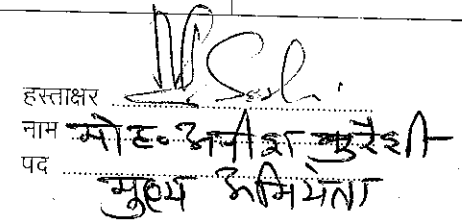 हस्ताक्षर
नाम मोह. अनीश कुरैशी
पद मुख्य अभियंता